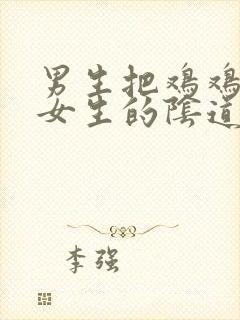 男生把鸡鸡
女生的陰道
李强